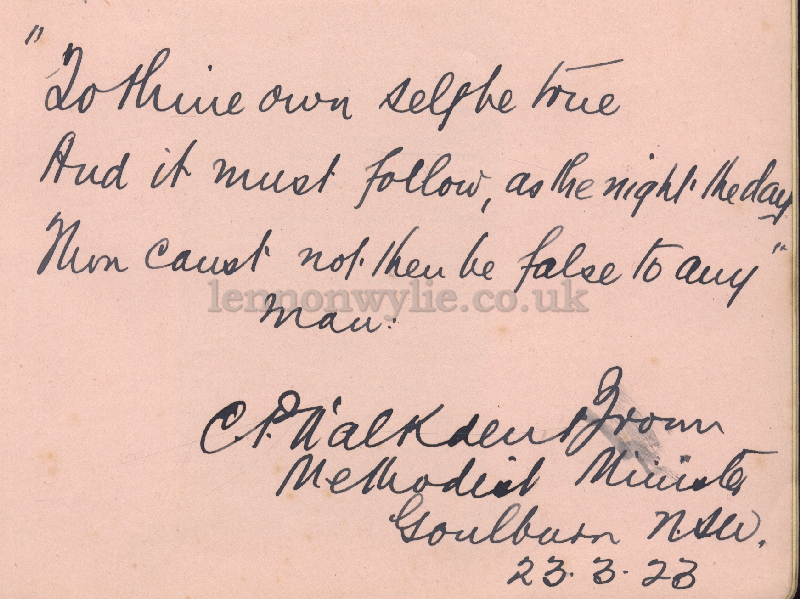 "To thine own self be true
And it must follow, as the night the day
Thou canst not then be false to any"
man.
lennonwylie.co.uk
C. P. Walkden Brown
Methodist Minister
Goulburn N.S.W.
23.3.23